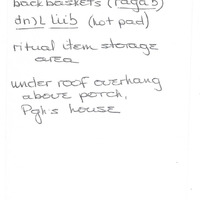 backbaskets (raga5)
(hot pad)
ritual item storage
area
under roof overhang
above porch,
Pgh's house